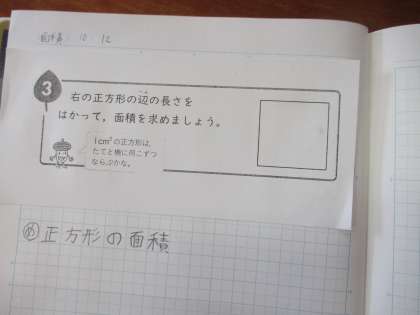 10 12
3
右の正方形の辺の長さを
はかって，面積を求めましょう。
1cm²の正方形は，
たてと横に何こずつ
ならぶかな。
め 正方形の面積